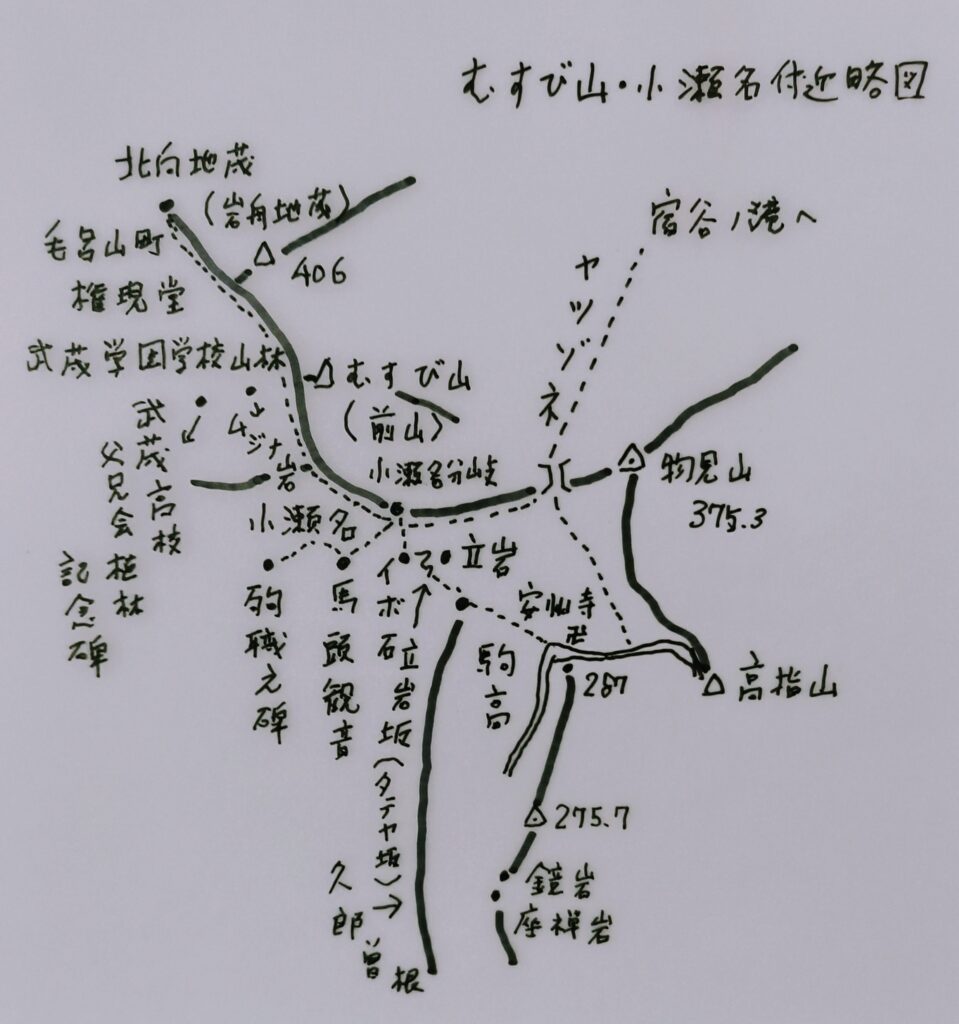 むすび山・小瀬名付近略図
北向地蔵
(岩舟地蔵)
毛呂山町
権現堂
406
宿谷ノ滝へ
ヤツゾネ
武蔵学園学校山林
むすび山
(前山)
武蔵高校
父兄会植林
記念碑
ムジナ
岩
小瀬名分岐
物見山
375.3
小瀬名
駒職之碑
馬頭観音
イボ石
立岩
立岩坂(タテヤ坂)
安州寺
卍
駒高
287
高指山
275.7
鏡岩
座禅岩
久郎曽根